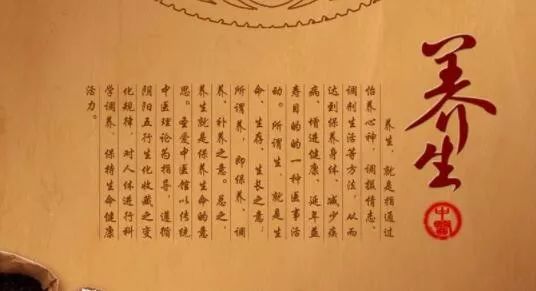 养生
中醫
养生,就是指通过
怡养心神,调摄情志、
调制生活等方法,从而
达到保养身体、减少疾
病、增进健康、延年益
寿目的的一种医事活
动。所谓生,就是生
命、生存、生长之意;
所谓养,即保养、调
养、补养之意。总之,
养生就是保养生命的意
思。圣爱中医馆以传统
中医理论为指导,遵循
阴阳五行生化收藏之变
化规律,对人体进行科
学调养,保持生命健康
活力。